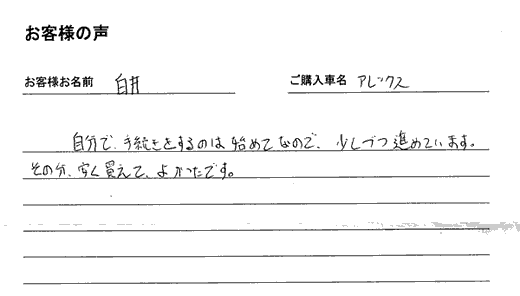 お客様の声
お客様お名前 白井 ご購入車名 アレックス
自分で、手続きをするのは始めてなので、少しづつ進めています。
その分、安く買えて、よかったです。